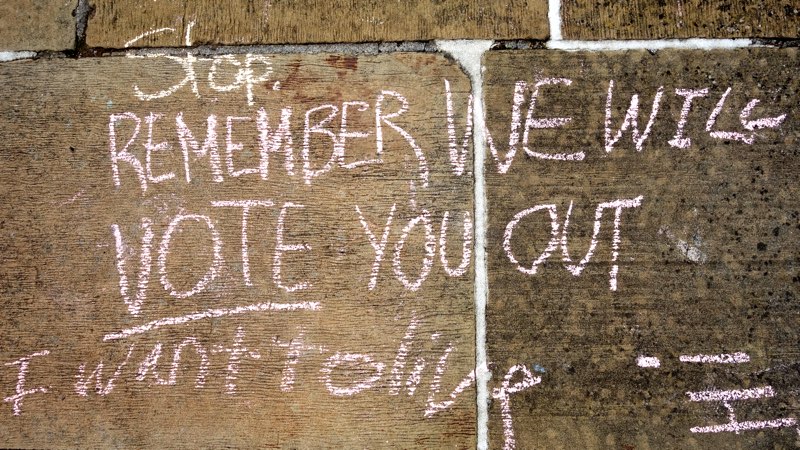 Stop.
REMEMBER WE WILL
VOTE YOU OUT
I want to live